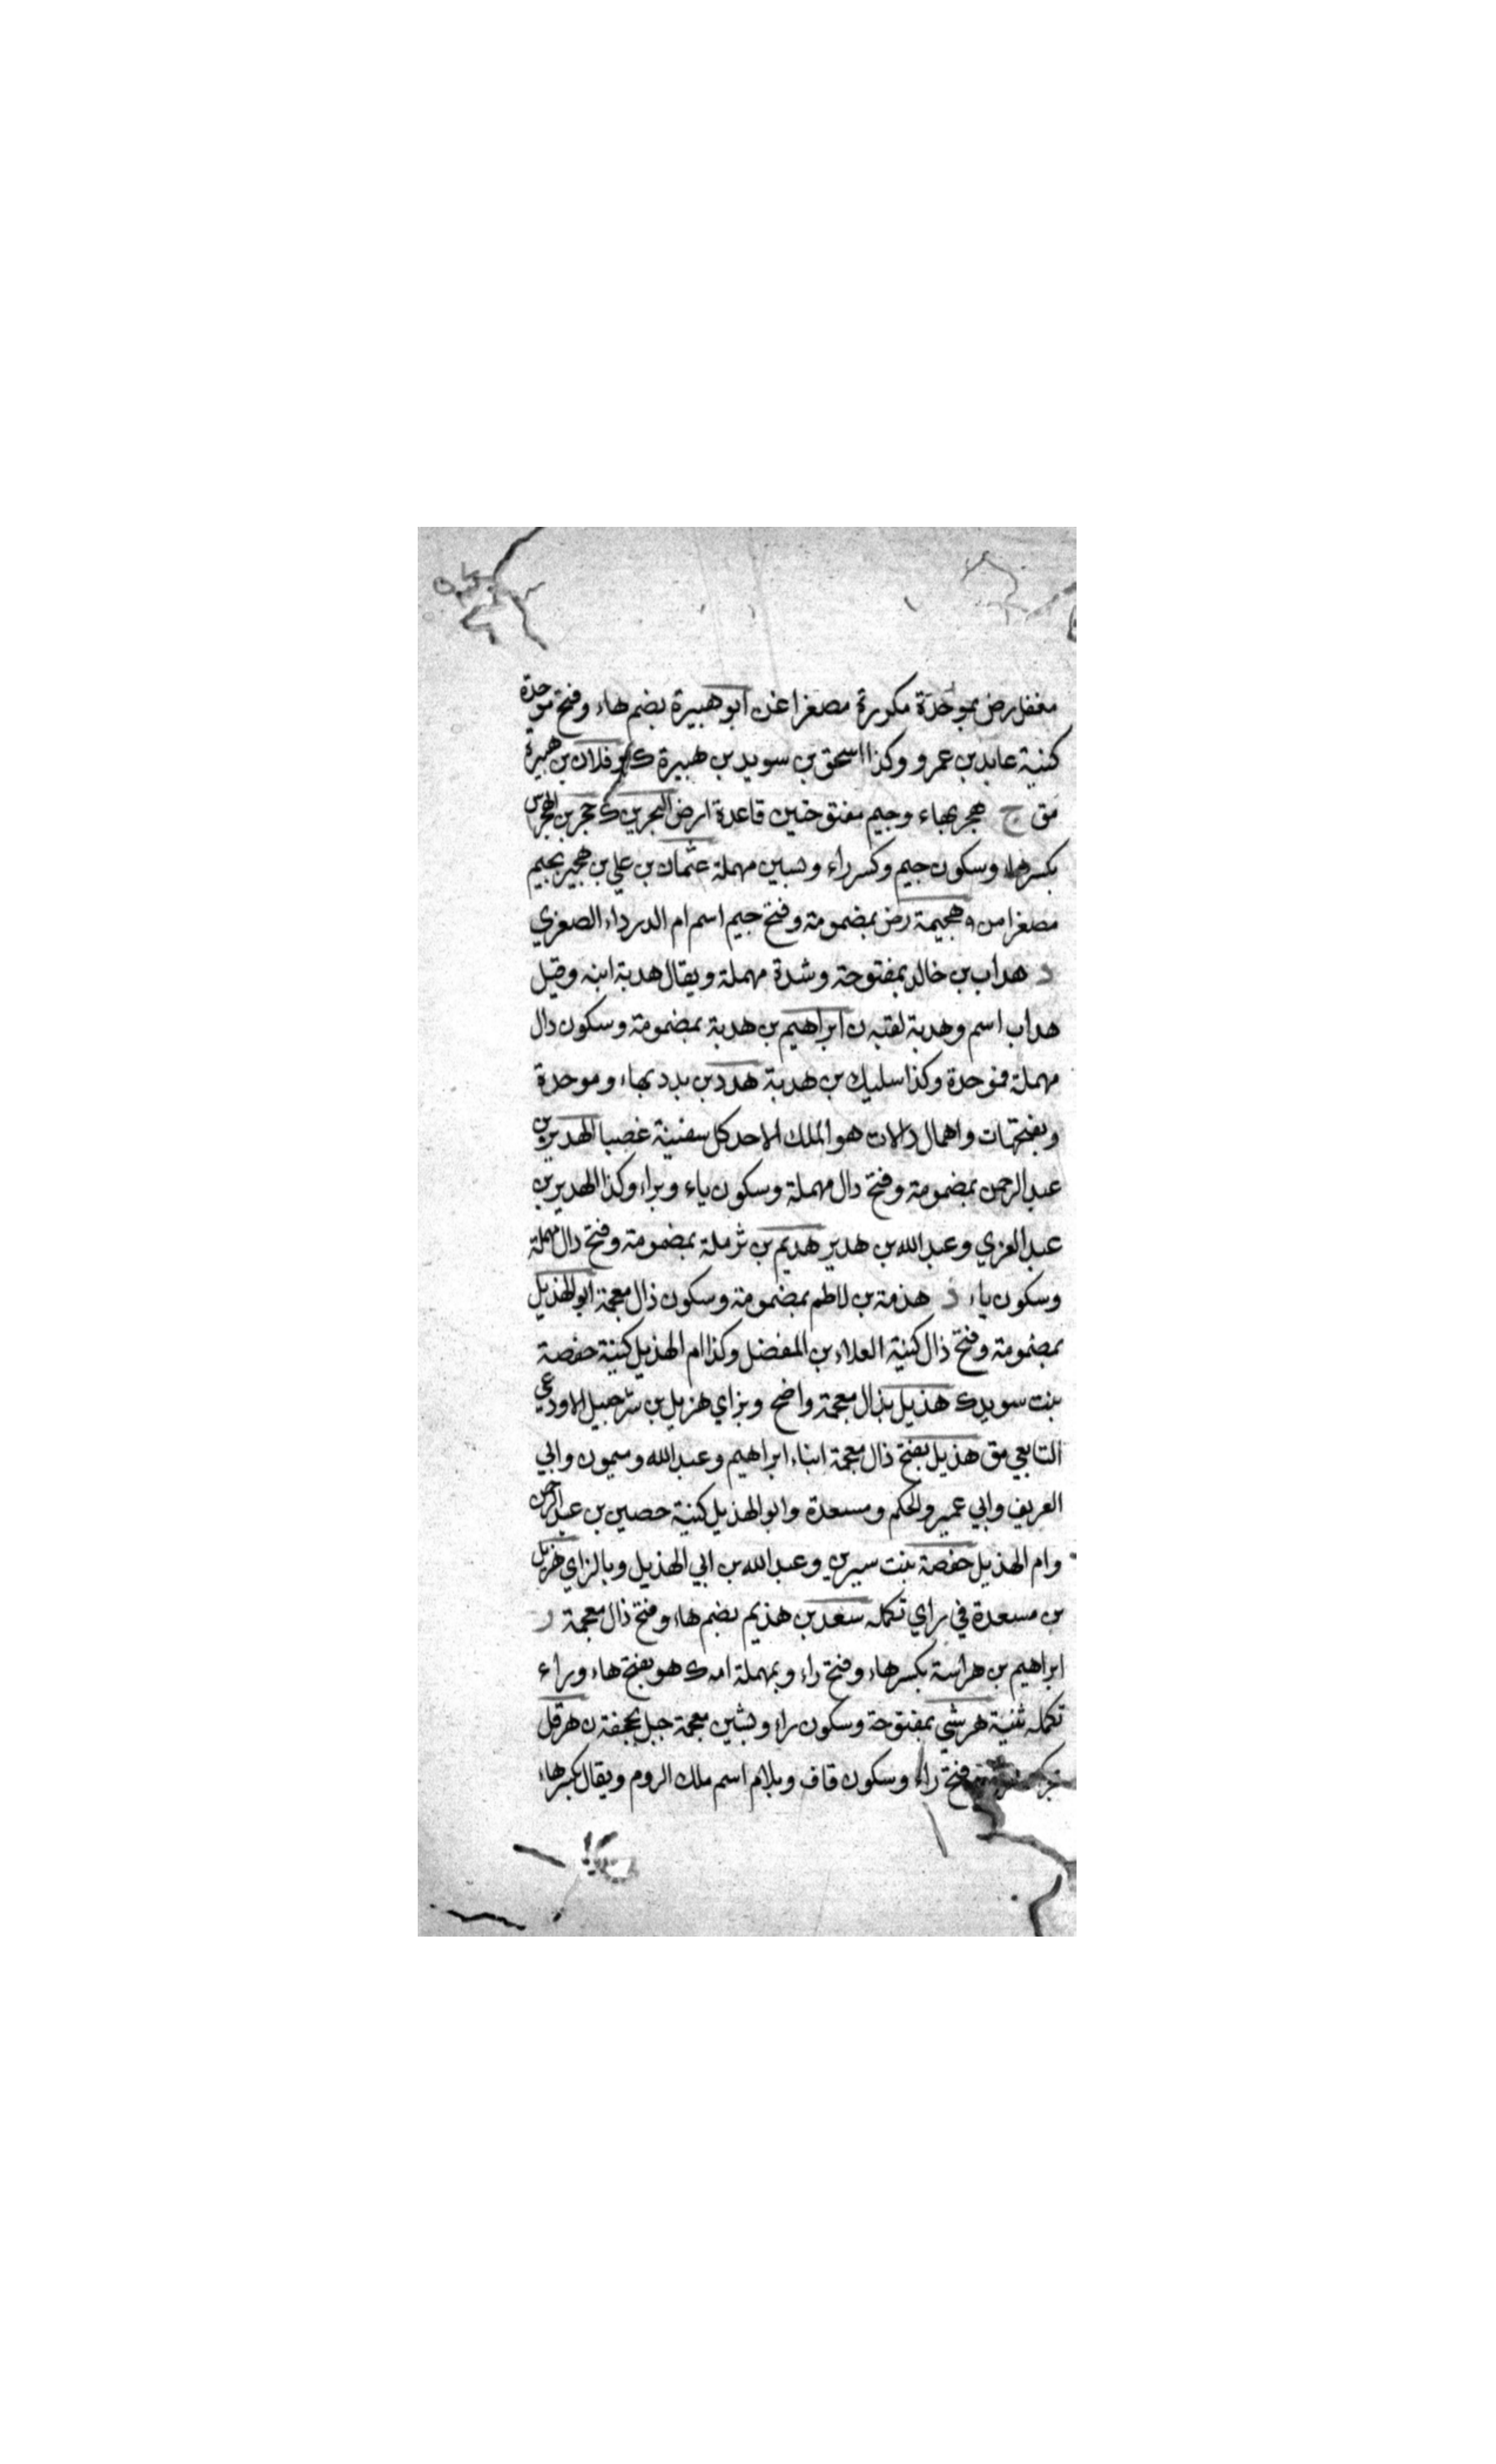 مغفل رض بموحدة مكررة مصغرا عن ابو هبيرة بضم هاء وفتح موحدة
كنية عابد بن عمرو وكذا اسحق بن سويد بن هبيرة ك فلان بن هبيرة
مق ج هجر بهاء وجيم مفتوحتين قاعدة ارض البحرين ك حجر بن الهجرس
بكسر هاء وسكون جيم وكسر راء وبسين مهملة عثمان بن علي بن هجير بجيم
مصغرا من هجيمة رض بمضمومة وفتح جيم اسم ام الدرداء الصغرى
د هداب بن خالد بمفتوحة وشدة مهملة ويقال هدبة ابنه وقيل
هداب اسم وهدبة لقبه ن ابراهيم بن هدبة بمضمومة وسكون دال
مهملة فموحدة وكذا سليك بن هدبة هدد بن بدد بهاء وموحدة
وبفتحات واهمال دالات هو الملك الاخذ كل سفينة غصبا الهدير بن
عبد الرحمن بمضمومة وفتح دال مهملة وسكون ياء وبراء وكذا الهدير بن
عبد العزي وعبد الله بن هدير هديم بن ثرملة بمضمومة وفتح دال مهملة
وسكون ياء ذ هذمة بن لاطم بمضمومة وسكون ذال معجمة ابو الهذيل
بمضمومة وفتح ذال كنية العلاء بن المفضل وكذا ام الهذيل كنية حفصة
بنت سويد ك هذيل بذال معجمة واضح وبزاي هزيل بن شرحبيل الاودي
التابعي مق هذيل بفتح ذال معجمة ابناء ابراهيم وعبد الله وميمون وابي
العريف وابي عمير والحكم ومسعدة وابو الهذيل كنية حصين بن عبد الرحمن
وام الهذيل حفصة بنت سيرين وعبد الله بن ابي الهذيل وبالزاي هزيل
بن مسعدة في راي تكمله سعد بن هذيم بضم هاء وفتح ذال معجمة ر
ابراهيم بن هراسة بكسر هاء وفتح راء وبمهملة امه ك هو بفتح هاء وراء
تكمله ثنية هرشي بمفتوحة وسكون راء وبشين معجمة جبل بجحفة ن هرقل
فتح راء وسكون قاف وبلام اسم ملك الروم ويقال بكسر هاء